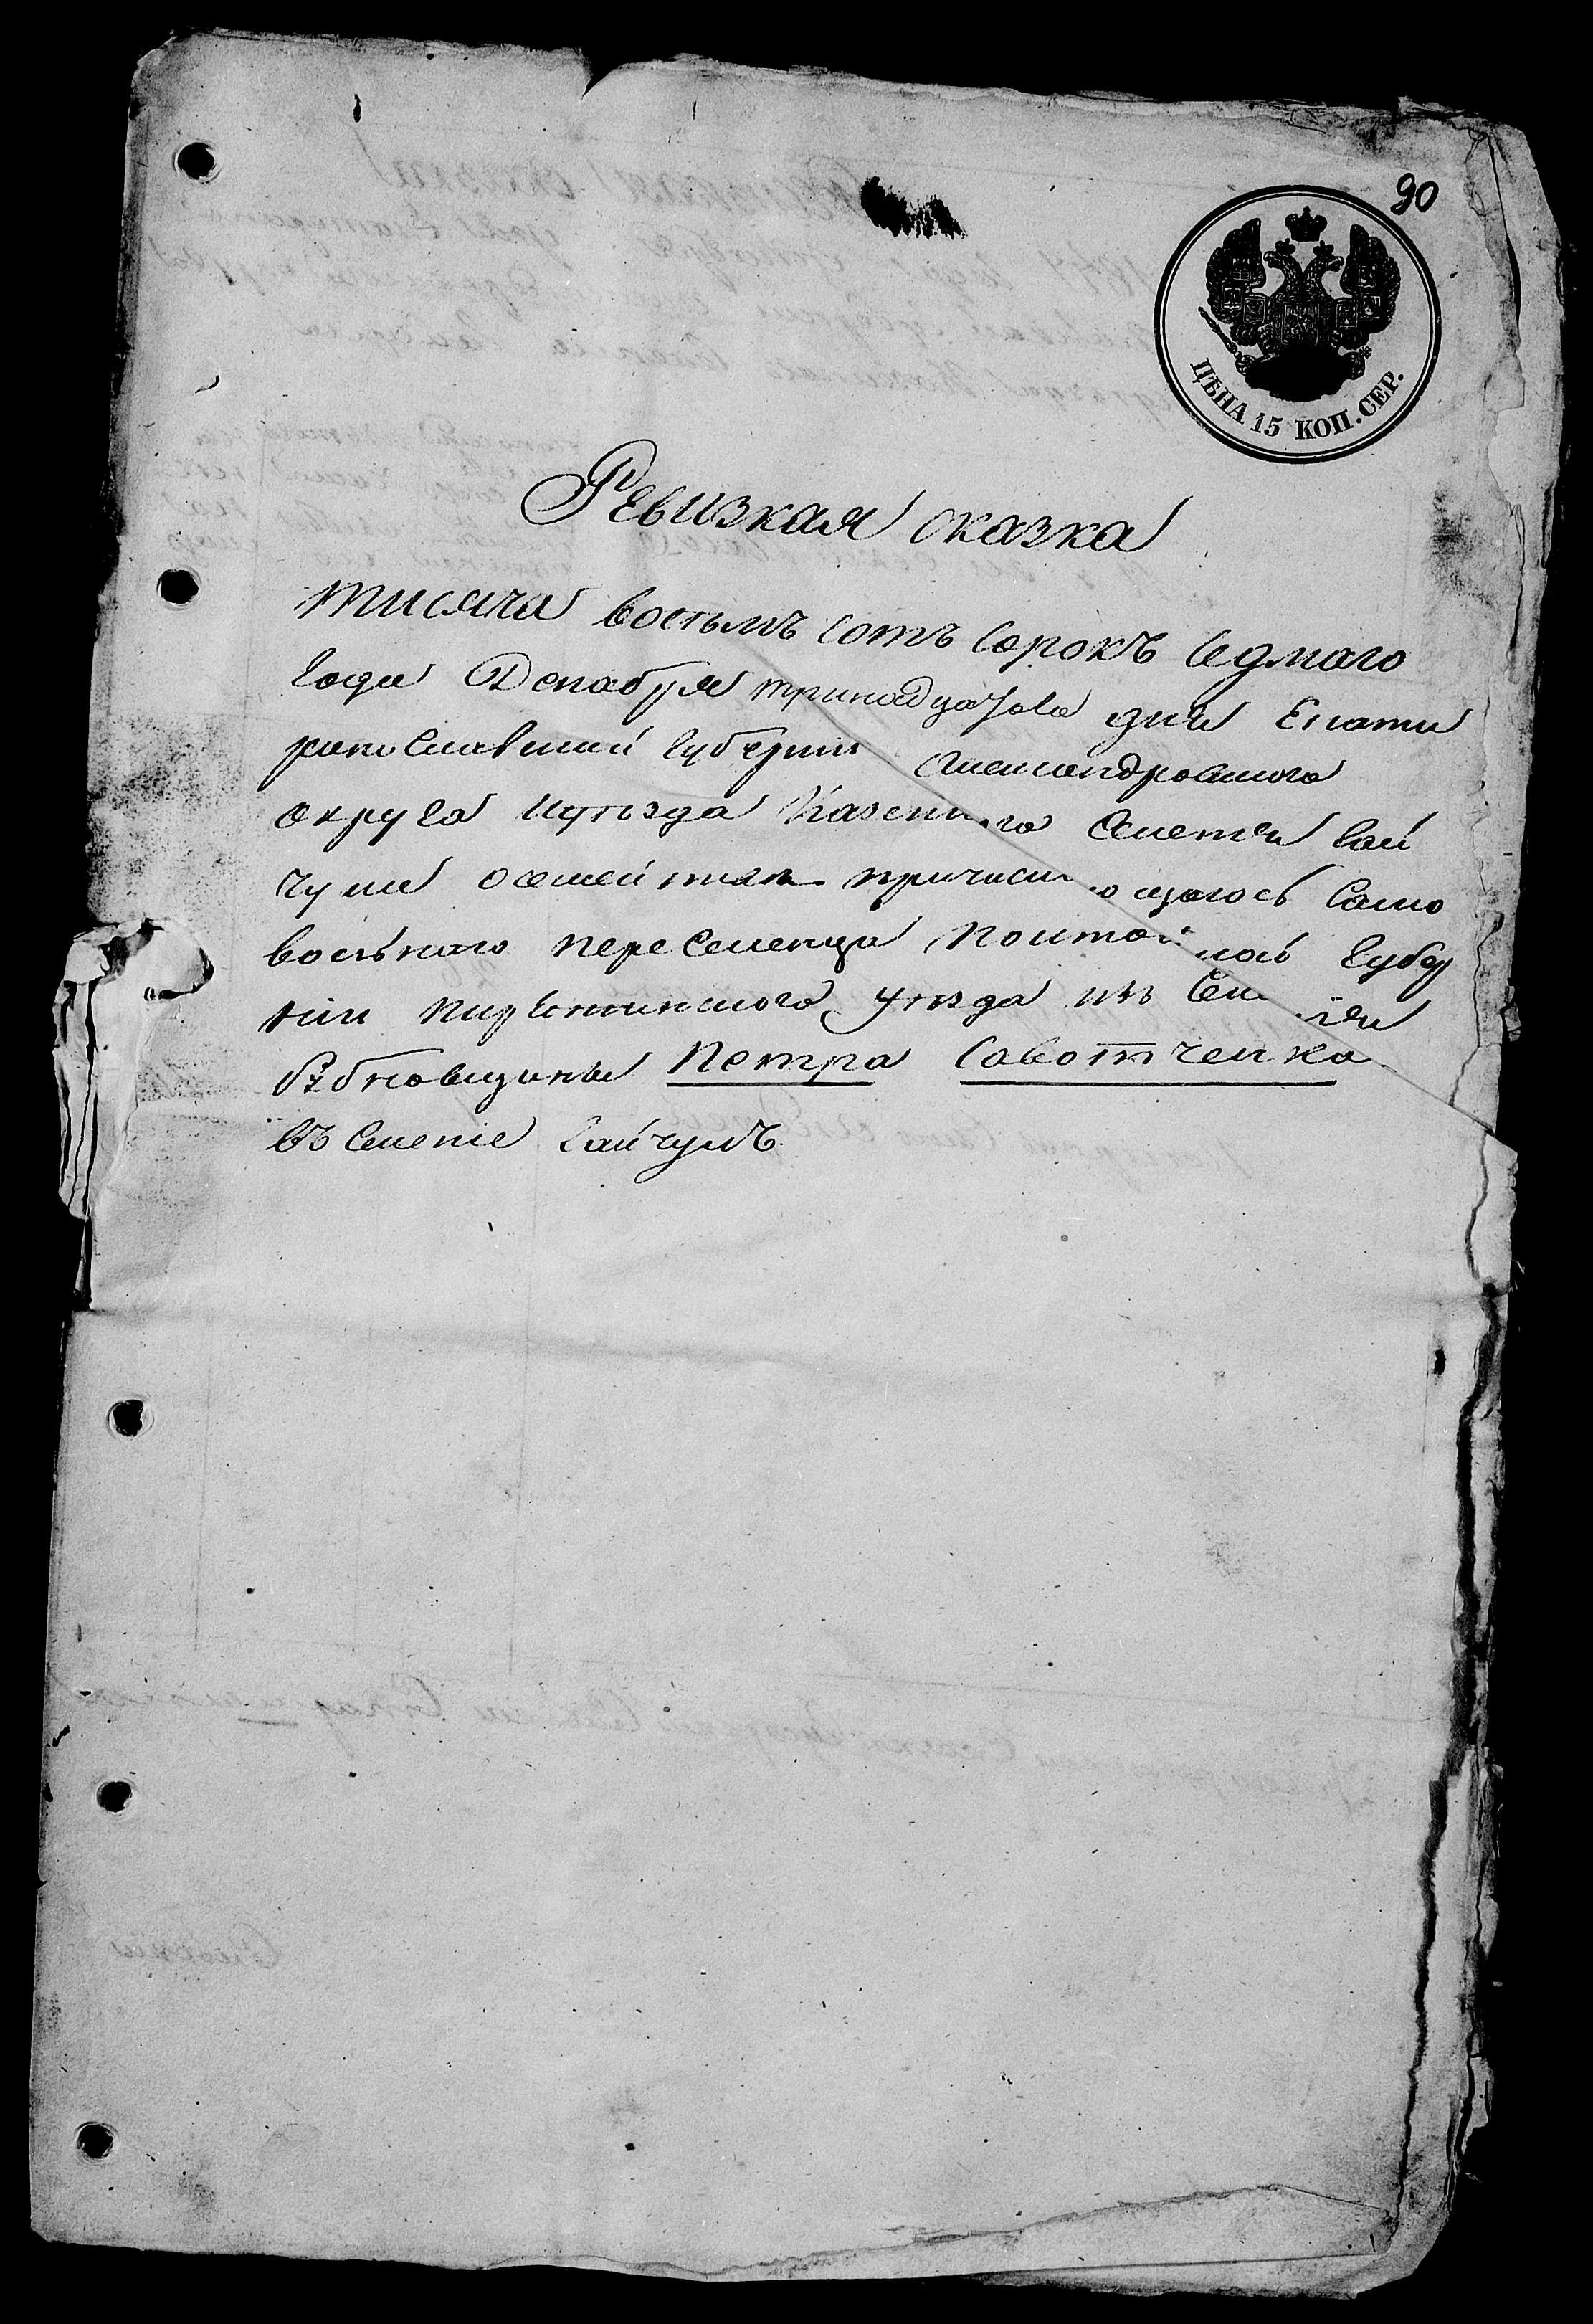 90
ЦѢНА 15 КОП. СЕР.
Ревизкая сказка
тисяча восьмъ сотъ сорокъ седмаго
года Декабря тринадцатова дня Екати
ринославской губерніи Александровского
округа иуѣзда Казенного Селенія Гай
чула осемействѣ причисляющагось само
вольного переселенца Полтавской губер
ніи Пирятинского уѣзда изъ Селенія
Петра Саботченка
въ Селеніе Гайчулъ